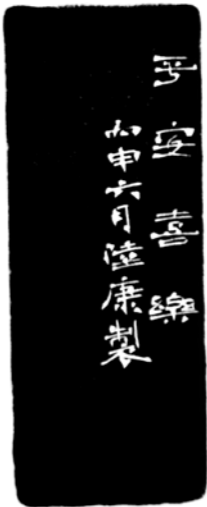 平安喜樂
丙申六月陸康製